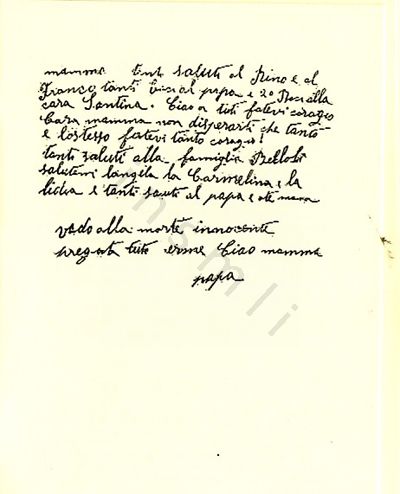 mamma tanti saluti al Rino e al
Franco tanti baci al papa e 20 Baci alla
cara Santina. Ciao a tuti fatevi coragio
Cara mamma non disperarti che tanto
e lostesso fatevi tanto coragio!
tanti saluti alla famiglia Bellobi
salutemi langela la Carmelina e la
lidia e tanti saluti al papa e
vado alla morte innocente
pregata tuti Ciao mamma
papa
insmli